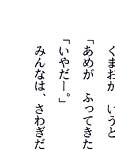 くまおが　いうと
「あめが　ふってきた
「いやだー。」
みんなは、さわぎだ